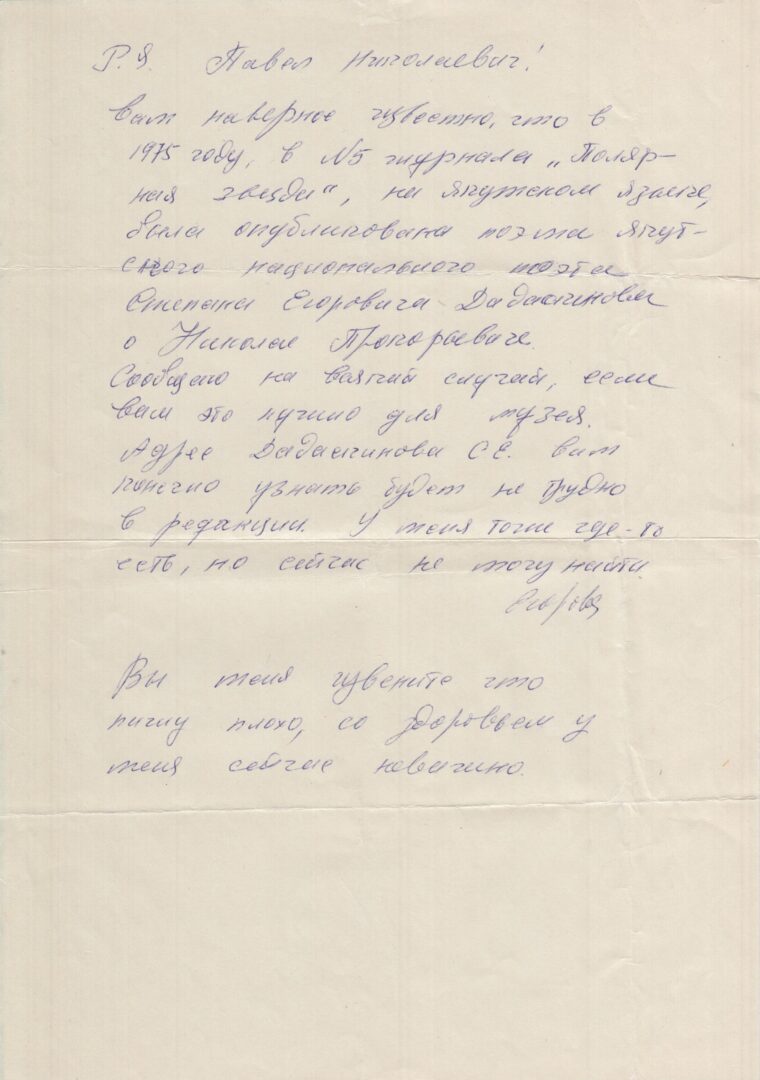 Р.Я. Павел Николаевич!
Вам наверное известно, что в
1975 году, в №5 журнала „Поляр-
ная звезда", на якутском языке,
была опубликована поэма якут-
ского национального поэта
Степана Егоровича Дадаскинова
о Николае Прокопьевиче.
Сообщаю на всякий случай, если
вам это нужно для музея.
Адрес Дадаскинова С.Е. вам
конечно узнать будет не трудно
в редакции. У меня тоже где-то
есть, но сейчас не могу найти.
Егорова
Вы меня извените что
пишу плохо, со здоровьем у
меня сейчас неважно.